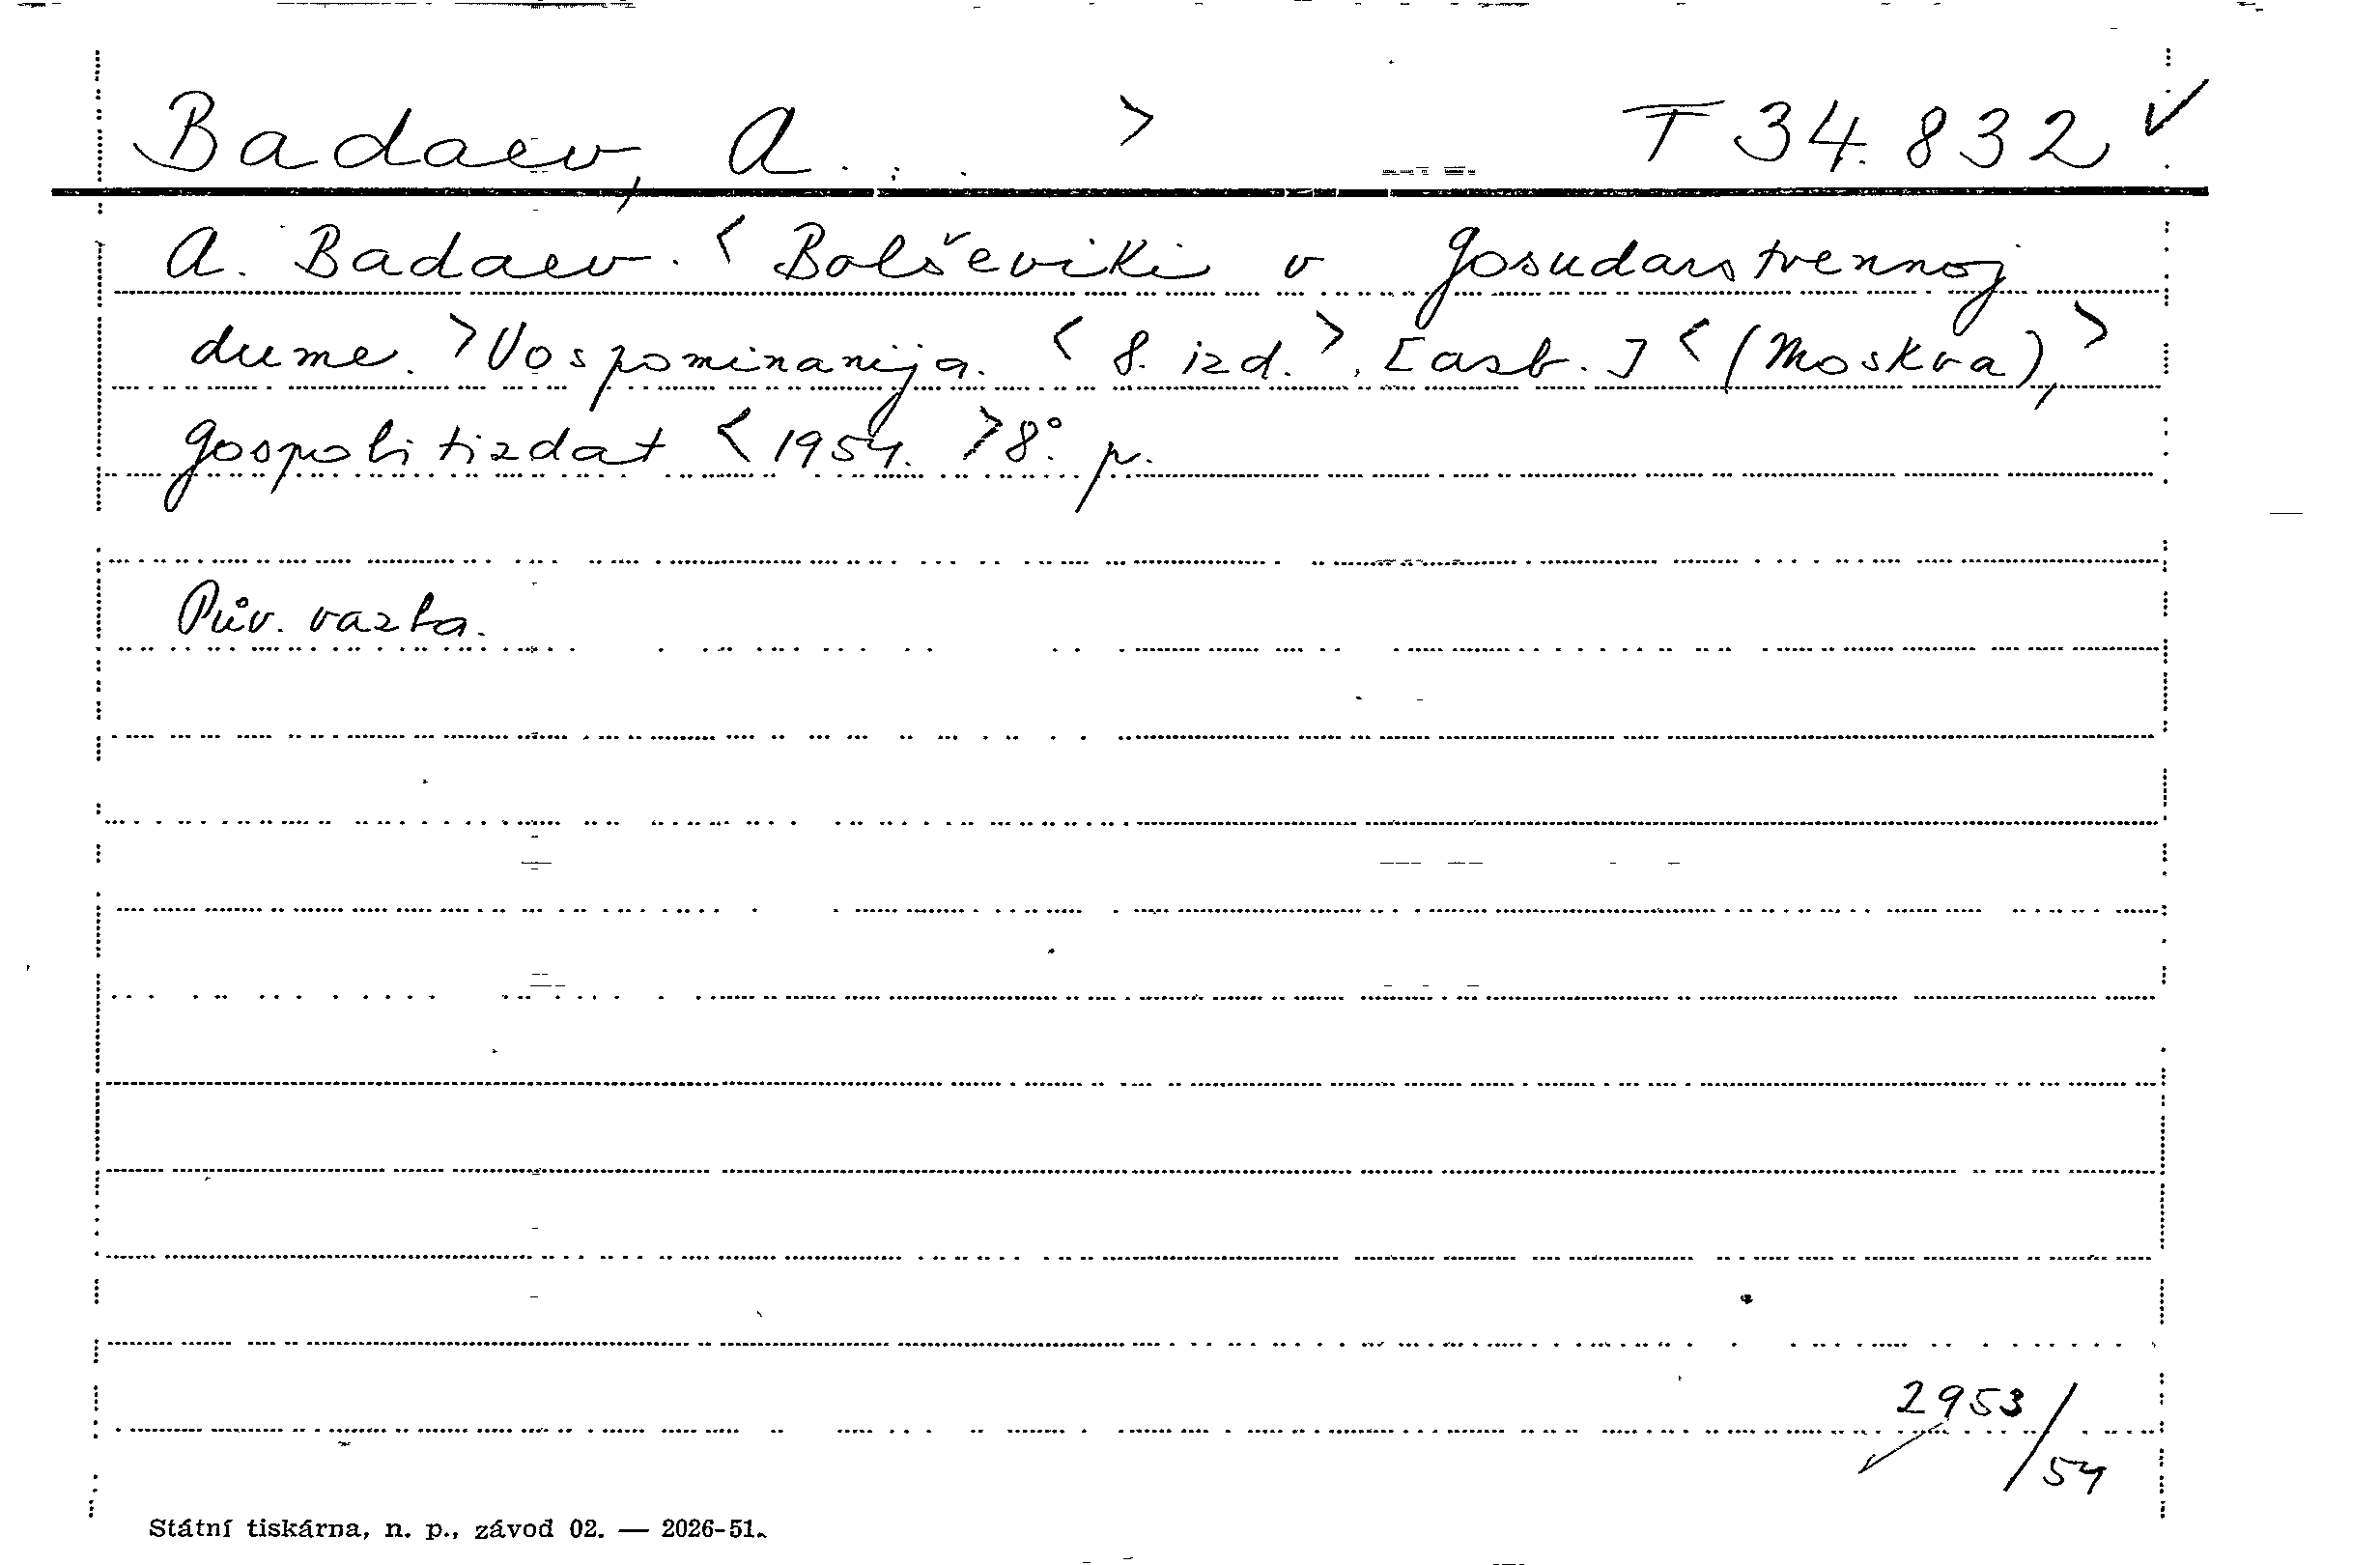 Badaev, A... > T 34.832 ✓
A. Badaev. < Bolševiki v Gosudarstvennoj
dume. > Vospominanija. < 8. izd. > . [azb.] < (Moskva), >
Gospolitizdat < 1954. > 8°. p.
Pův. vazba.
2953/54
Státní tiskárna, n. p., závod 02. — 2026-51.